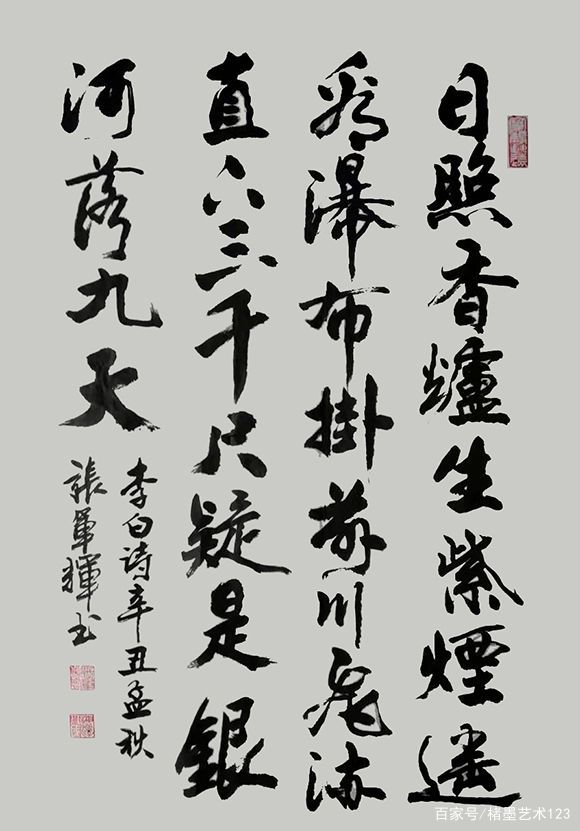 日照香爐生紫煙遥
看瀑布掛前川飛流
直下三千尺疑是銀
河落九天
李白诗辛丑孟秋
張軍輝书
百家号/楮墨艺术123